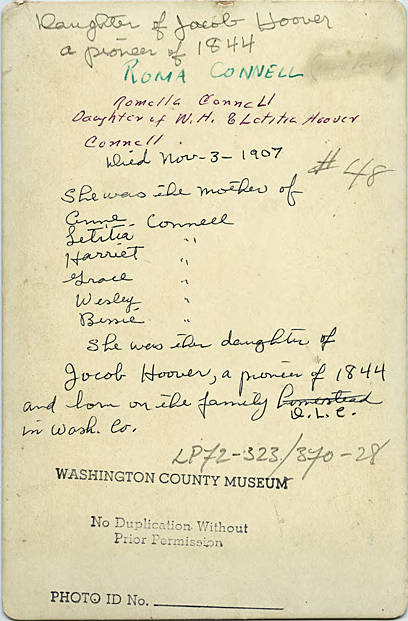 Daughter of Jacob Hoover
a pioneer of 1844
ROMA CONNELL
Romella Connell
Daughter of W. H. & Letitia Hoover
Connell.
Died Nov-3-1907
#48
She was the mother of
Anne Connell
Letitia "
Harriet "
Grace "
Wesley "
Bessie "
She was the daughter of
Jacob Hoover, a pioneer of 1844
and born on the family homestead
D.L.C.
in Wash. Co.
LP72-323/370-28
WASHINGTON COUNTY MUSEUM
No Duplication Without
Prior Permission
PHOTO ID No.